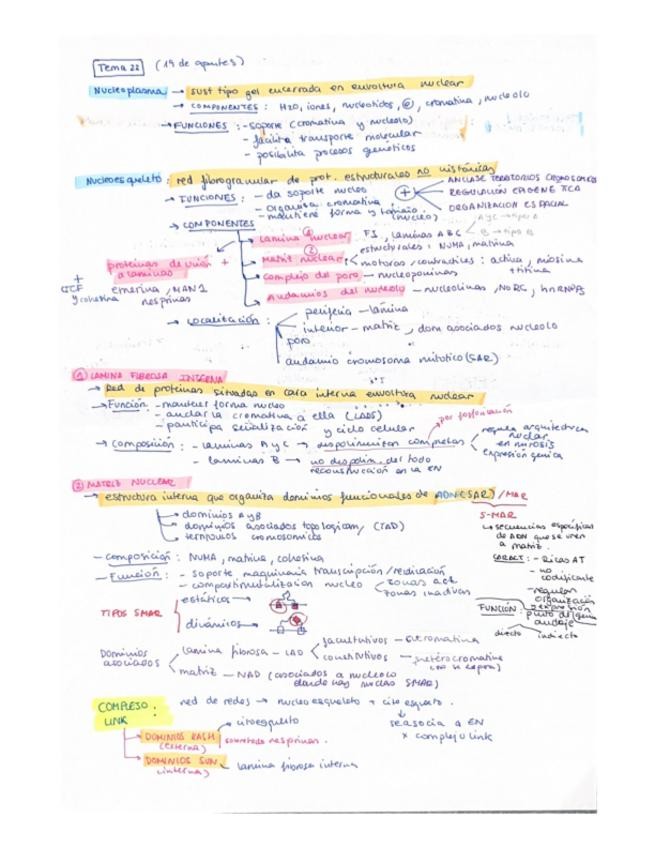 Tema 22 (19 de apuntes)
Nucleoplasma → sust tipo gel encerrada en envoltura nuclear
→ COMPONENTES: H2O, iones, nucleotidos, cromatina, nucleolo
→ FUNCIONES: - soporte (cromatina y nucleolo)
- facilita transporte molecular
- posibilita procesos genéticos
Nucleoesqueleto: red fibrogranular de prot. estructurales no histónicas
→ FUNCIONES: - da soporte nucleo
- organiza cromatina
- mantiene forma y tamaño (nucleo)
+ ANCLAJE TERRITORIOS CROMOSOMICOS
REGULACIÓN EPIGENETICA
ORGANIZACION ESPACIAL
→ COMPONENTES
A y C → tipo A
B → tipo B
Lamina nuclear ① FI, laminas A B C
Matriz nuclear ② estructurales: NUMA, matrina
motoras / contractiles: actina, miosina + titina
Complejo del poro - nucleoporinas
Andamios del nucleolo - nucleolinas, NORC, hnRNPs
proteinas de unión a laminas +
emerina, MAN1
nesprinas
+ CTCF y cohesina
→ Localización: periferia - lámina
interior - matriz, dom asociados nucleolo
poro
andamio cromosoma mitotico (SAR)
① LAMINA FIBROSA INTERNA
→ Red de proteinas situadas en cara interna envoltura nuclear
→ Función: - mantener forma nucleo
- anclar la cromatina a ella (LADS)
- participa señalización y ciclo celular
→ Composición: - laminas A y C → despolimerizan completas
por fosforilación
regula arquitectura nuclear en mitosis
expresión genica
- laminas B → no despolim. del todo
reconstrucción en la EN
② MATRIZ NUCLEAR
→ estructura interna que organiza dominios funcionales de ADN (SAR) / MAR
→ dominios A y B
→ dominios asociados topologicam/ (TAD)
→ territorios cromosomicos
S-MAR
↳ secuencias específicas de ADN que se unen a matriz.
CARACT: - Ricas AT
- no codificante
- regulan organización y expresión
FUNCIÓN: punto de anclaje
directo indirecto
- Composición: NUMA, matrina, cohesina
- Función: - soporte maquinaria transcripción / replicación
- compartimentalización nucleo < zonas act.
zonas inactivas
TIPOS SMAR
estáticos →
dinámicos →
Dominios asociados
lamina fibrosa - LAD < facultativos - eucromatina
constitutivos - heterocromatina
matriz - NAD (asociados a nucleolo
donde hay muchas SMAR)
COMPLEJO LINK: red de redes → nucleoesqueleto + citoesqueto.
se asocia a EN
x complejo link
→ DOMINIOS KASH (externa) → citoesqueleto
sobretodo nesprinas.
→ DOMINIOS SUN (interna) - lamina fibrosa interna